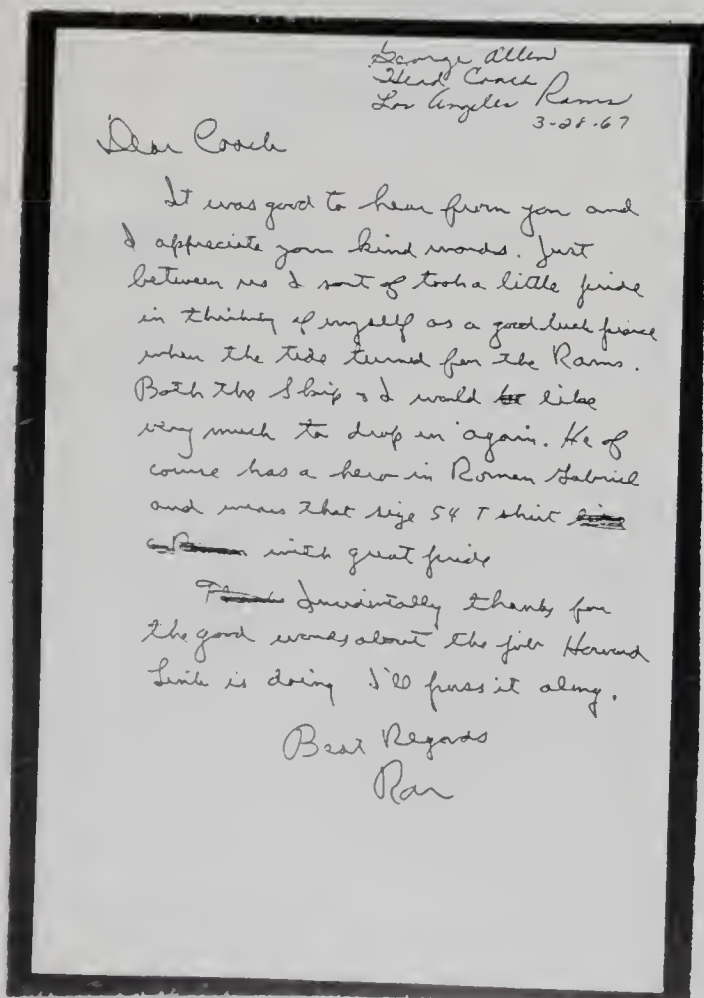 George Allen
Head Coach
Los Angeles Rams
3-28-67
Dear Coach
It was good to hear from you and
I appreciate your kind words. Just
between us I sort of took a little pride
in thinking of myself as a good luck piece
when the tide turned for the Rams.
Both the Skip & I would like
very much to drop in again. He of
course has a hero in Roman Gabriel
and wears that size 54 T shirt
with great pride
Incidentally thanks for
the good words about the job Howard
is doing I'll pass it along.
Best Regards
Ron